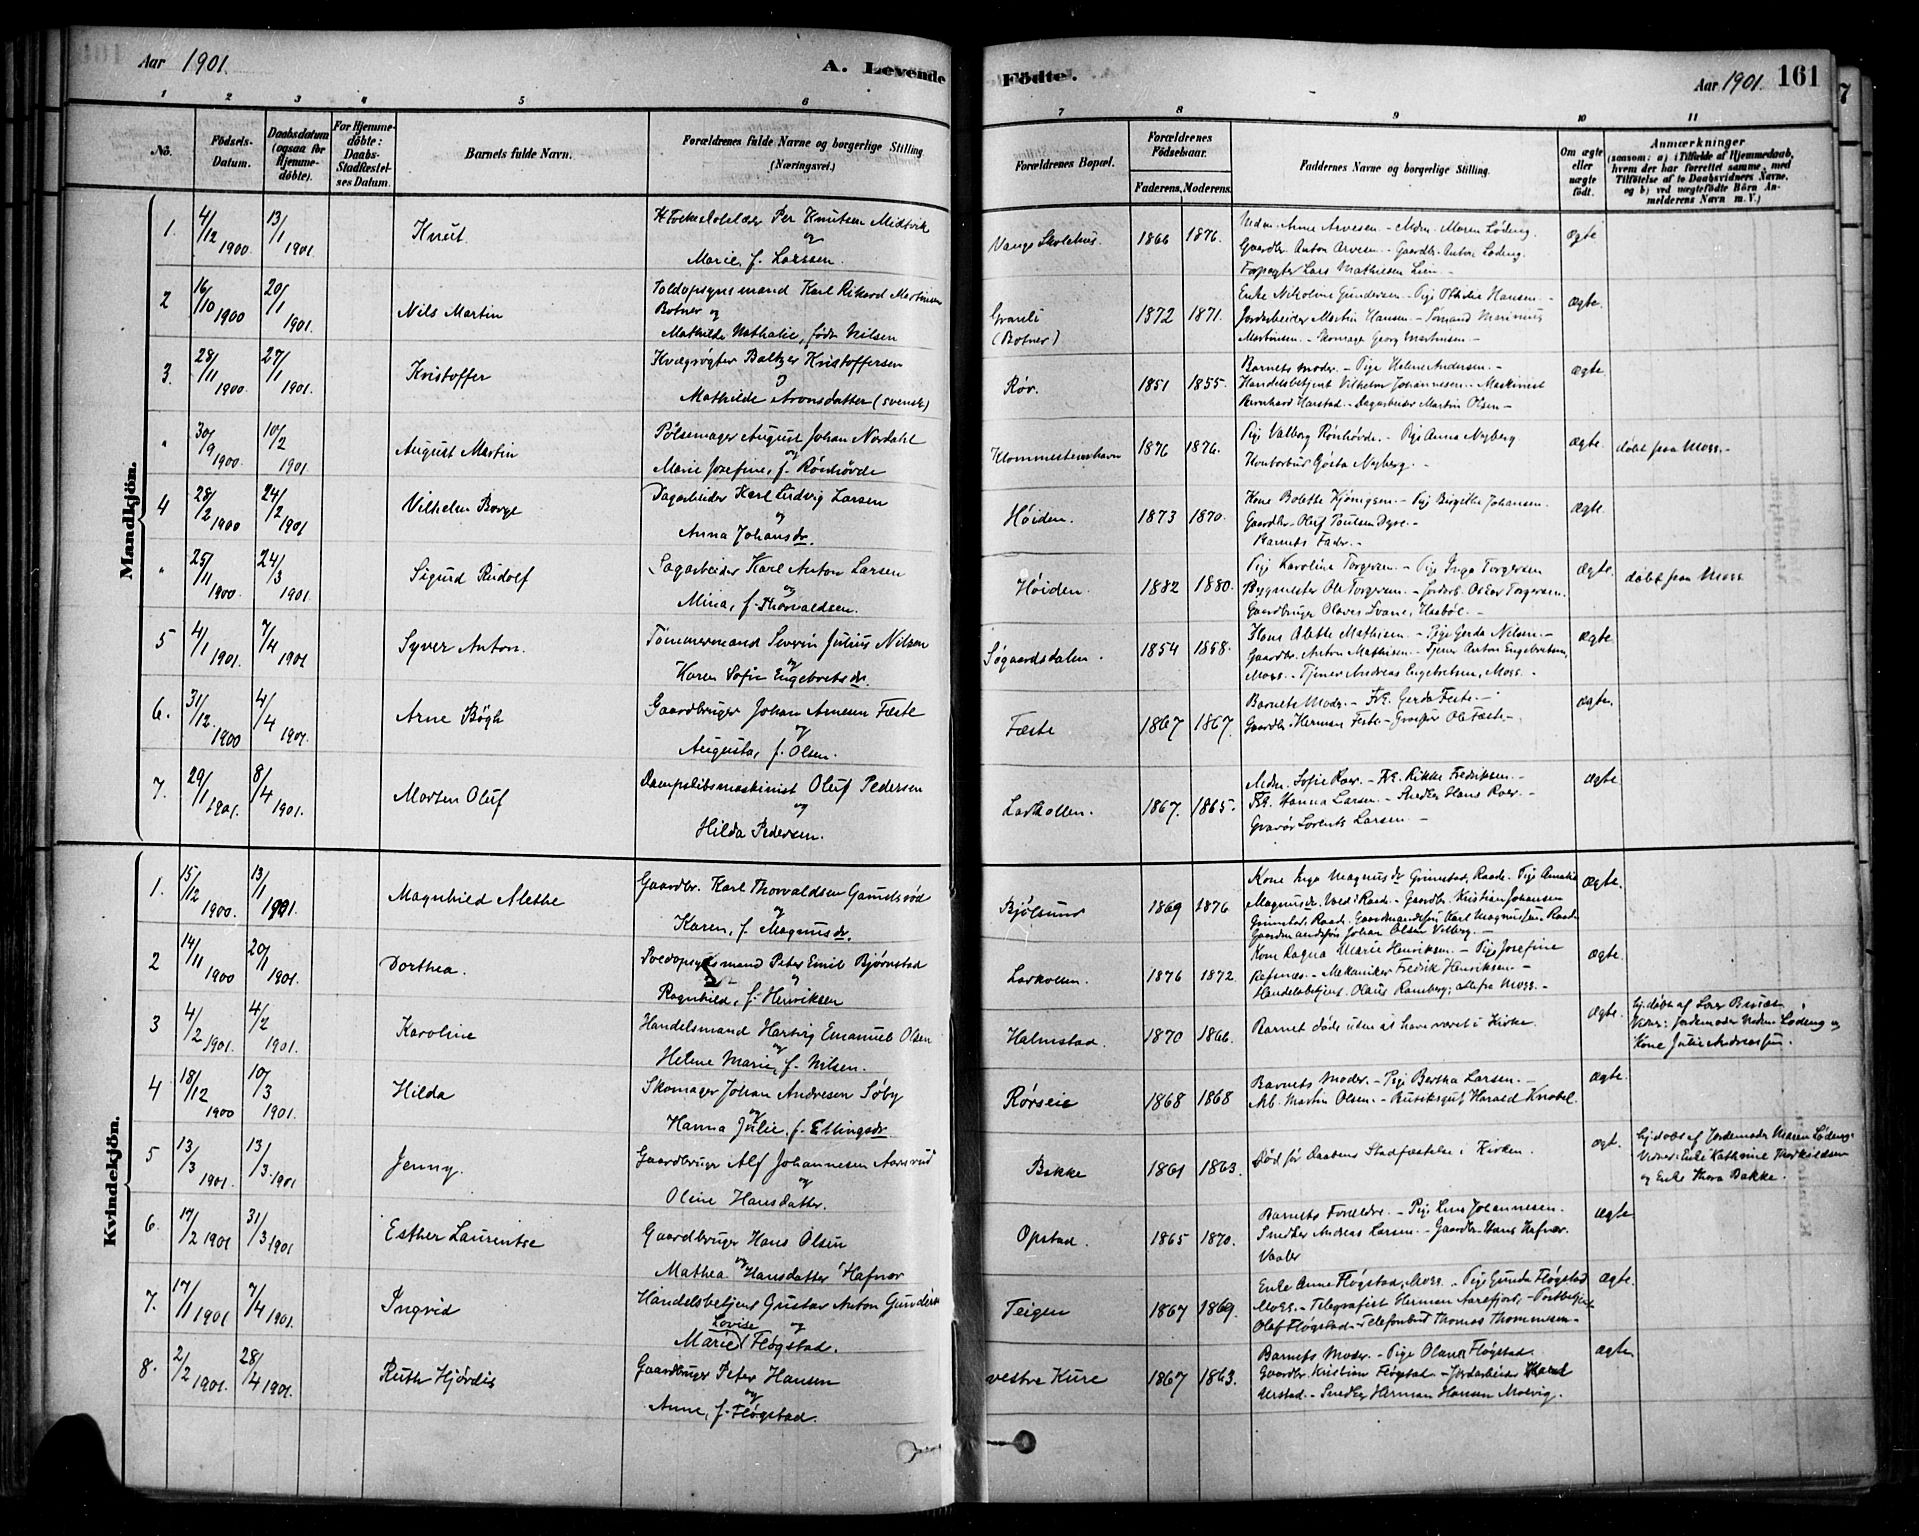 Aar 1901.
A. Levende
Födte.
Aar 1901.
161
1 2 3 4 5 6 7 8 9 10 11
No.
Födsels-Datum.
Daabsdatum (ogsaa for Hjemmedöbte).
For Hjemmedöbte: Daabs-Stadfæstelses Datum.
Barnets fulde Navn.
Forældrenes fulde Navne og borgerlige Stilling
(Næringsvei.)
Forældrenes Bopæl.
Forældrenes Födselsaar.
Faderens. Moderens.
Faddernes Navne og borgerlige Stilling.
Om ægte eller uægte födt.
Anmærkninger
(saasom: a) i Tilfælde af Hjemmedaab,
hvem der har forrettet samme, med
Tilföielse af to Daabsvidners Navne,
og b) ved uægtefödte Börn Anmelderens Navn m. V.)
Mandkjön.
1. 4/12 1900 13/1 1901 Knut
Per Knutsen Midtvik
og
Marie, f. Larssen.
Vangs Skolehus. 1866 1876.
Anne Arvesen - Mdm. Maren Lødeng.
Gaardbr. Anton Arvesen - Gaardbr. Anton Lødeng.
Forpagter Lars Mathiesen Lien -
Ægte
2 16/10 1900 20/1 1901. Nils Martin
Toldopsynsmand Karl Rikard Martinsen
Botner og
Mathilde Nathalie, født Nilsen
Granli
(Botner) 1872 1871.
Enke Nikoline Gundersen - Pige Othilie Hansen -
Jordarbeider Martin Hansen - Sømand Marinius
Martinsen - Skomager Georg Martinsen -
Ægte.
3. 28/11 1900 27/1 1901. Kristoffer
Kvægrøgter Baltzer Kristoffersen
og
Mathilde Aronsdatter (svensk)
Rør. 1851 1855.
Barnets Moder - Pige Helene Andersen. -
Handelsbetjent Vilhelm Johannesen - Maskinist
Bernhard Harstad - Dagarbeider Martin Olsen -
Ægte
" 30/9 1900. 10/2 1901. August Martin
Pølsemager August Johan Nordahl
og
Marie Josefine, f. Rønhövde
Klommestenshavn 1876 1876.
Pige Valborg Rönhövde. - Pige Anna Nyberg
Kontorbud Gösta Nyberg. -
Ægte. døbt paa Moss. -
4 28/2 1900 24/2 1901 Vilhelm Borge
Dagarbeider Karl Ludvig Larsen
og
Anna Johansdr.
Høiden. 1873 1870.
Kone Bolette Kjönigsen. - Pige Birgitte Johansen.
Gaardbr. Oluf Poulsen Dyre. -
Barnets Fader. -
Ægte.
" 25/11 1900. 24/3 1901. Sigurd Rudolf
Sagarbeider Karl Anton Larsen
og
Mina, f. Thorvaldsen.
Høiden. 1882 1880.
Pige Karoline Torgersen - Pige Inga Torgersen
Bygmester Ole Torgersen. - Jordarb. Oskar Torgersen.
Gaardbruger Olaves Svane, Hasböl. -
Ægte. døbt paa Moss
5 4/1 1901. 7/4 1901 Syver Anton.
Tømmermand Severin Julius Nilsen
og
Karen Sofie Engebretsdr.
Søgaardsdalen. 1854 1858.
Kone Olette Mathisen - Pige Gerda Nilsen. -
Gaardbr. Anton Mathisen - Tjener Anton Engebretsen,
Moss. - Tjener Andreas Engebretsen, Moss. -
Ægte
6. 31/12. 1900 4/4 1901. Arne Bøgh
Gaardbruger Johan Arnesen Fæste
og
Augusta, f. Olsen.
Fæste 1867 1867.
Barnets Moder. - Frk. Gerda Feste. -
Gaardbr. Herman Feste - Ole Fæste -
Ægte.
7. 29/1 1901. 8/4 1901. Morten Oluf
Dampskibsmaskinist Oluf Pedersen
og
Hilda Pedersen.
Larkollen. 1867. 1865.
Mdm. Sofie Roer. - Fr. Rikke Fredriksen. -
Fr. Hanna Larsen. - Snedker Hans Roer. -
Gravør Lorents Larsen -
Ægte
Kvindekjön.
1. 15/12 1900. 13/1 1901. Magnhild Alethe
Gaardbr. Karl Thorvaldsen
og
Karen, f. Magnusdr.
Bjölsund 1869 1876
Kone Inga Magnusdr Grimstad, Raade. - Pige
Magnusdr. Vold i Raade - Gaardbr. Kristian Johansen
Grimstad, Raade. Gaardmandssøn Karl Magnussen, Raade
Gaardmandssön Johan Olsen Vilberg. -
Ægte.
2 14/11 1900. 20/1 1901. Dorthea.
Toldopsynsmand Peter Emil Bjørnstad
og
Ragnhild, f. Henriksen
Larkollen. 1876 1872.
Kone Ragna Marie Henriksen. - Pige Josefine
Refsnæs. - Mekaniker Fredrik Henriksen. -
Handelsbetjent Olaus Ramberg; alle fra Moss. -
Ægte.
3 4/2 1901. 4/2 1901. Karoline
Handelsmand Hartvig Emanuel Olsen
og
Helene Marie, f. Nilsen.
Halmstad. 1870 1866.
Barnet døde uden at have været i Kirke
Ægte. hj.døbt af
Vidner: Jordemoder Lødeng og
Kone Julie Andreassen.
4 18/12 1900 10/3 1901. Hilda
Skomager Johan Andresen Søby
og
Hanna Julie, f. Ellingsdr
Rørseie 1868 1868
Barnets Moder. - Pige Bertha Larsen. -
Arb. Martin Olsen. - Butiksgut Harald Knobel.
Ægte.
5 13/3 1901. 13/3 1901 Jenny.
Gaardbruger Alf Johannesen
og
Oline Hansdatter.
Bakke 1861 1863.
Død før Daabens Stadfæstelse i Kirken.
Ægte. hj.døbt af Jordemoder Maren Lødeng.
Vidner: Enke Kathrine Thorkildsen
og Enke Thora Bakke.
6. 17/2 1901 31/3 1901 Esther Laurentse
Gaardbruger Hans Olsen
og
Mathea Hansdatter Hafnor
Opstad. 1865 1870.
Barnets Forældre. - Pige Lina Johannesen.
Snedker Andreas Larsen. - Gaardbr. Hans Hafnor.
Vaaler
Ægte
7. 17/1 1901 7/4 1901. Ingvid
Handelsbetjent Gustav Anton Gundersen
Lovise og
Marie Fløgstad.
Teigen 1867 1869.
Enke Anne Fløgstad, Moss. - Pige Gunda Fløgstad
Moss. - Telegrafist Herman Aarefjord, - Postbetjent
Olaf Fløgstad - Telefonbud Thomas Thomessen -
Ægte.
8. 2/2 1901. 28/4 1901. Ruth Hjördis
Gaardbruger Peter Hansen
og
Anne, f. Fløgstad.
vestre Kure 1867 1863.
Barnets Moder. - Pige Olana Fløgstad.
Gaardbr. Kristian Fløgstad - Jordarbeider
Urstad. - Snedker Herman Hansen Molvig.
Ægte.